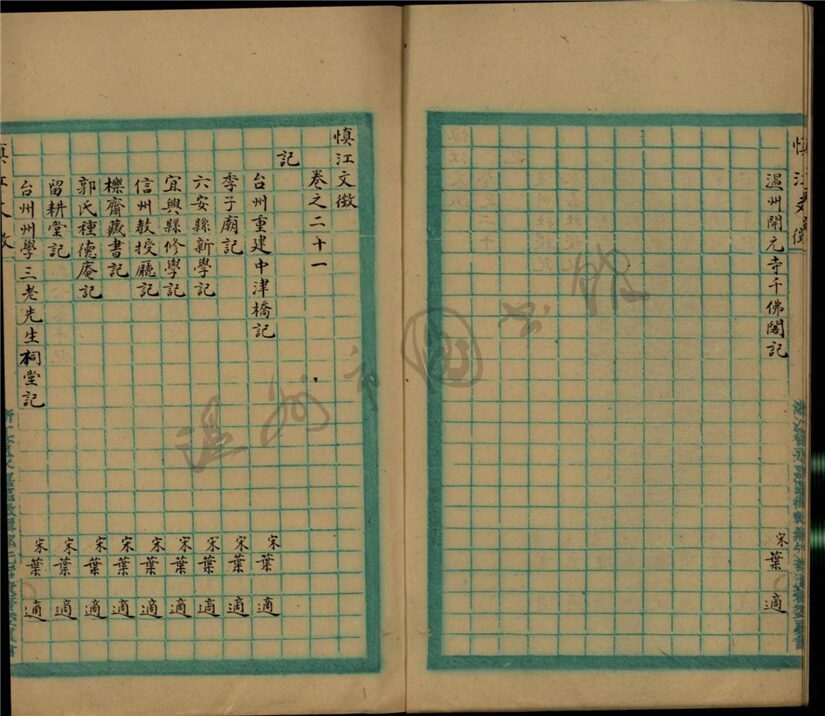 慎江文徵
温州開元寺千佛閣記 宋葉適
慎江文徵
卷之二十一
記
台州重建中津橋記 宋葉適
季子廟記 宋葉適
六安縣新學記 宋葉適
宜興縣修學記 宋葉適
信州教授廳記 宋葉適
櫟齋藏書記 宋葉適
郭氏種德庵記 宋葉適
留耕堂記 宋葉適
台州州學三老先生祠堂記 宋葉適
温州市圖书馆